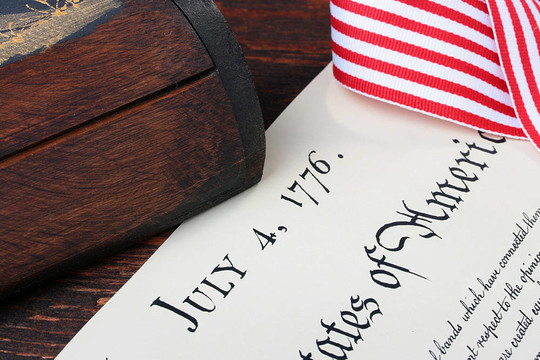 JULY 4, 1776.
tates of Americ
bands which have connected them
respect to the opinions
created equ